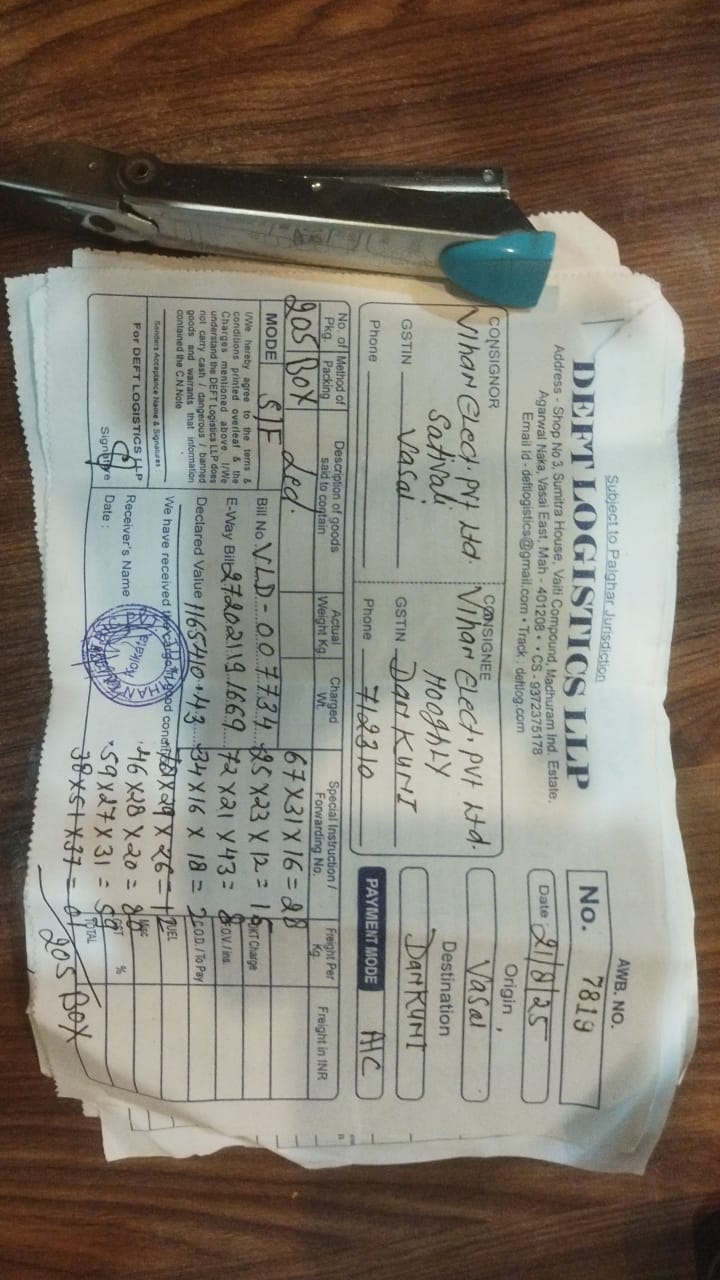 Subject to Palghar Jurisdiction
DEFT LOGISTICS LLP
Address - Shop No 3, Sumitra House, Vaiti Compound, Madhuram Ind. Estate,
Agarwal Naka, Vasai East, Mah - 401208 • • CS - 9372375178
Email Id - deftlogistics@gmail.com • Track : deftlog.com
AWB. NO.
No. 7819
Date : 21/8/25
CONSIGNOR
Vihar Elect. Pvt Ltd.
Sativali
Vasai
GSTIN
Phone
CONSIGNEE
Vihar Elect. Pvt Ltd.
HOOGHLY
GSTIN DANKUNI
Phone 712310
Origin
Vasai
Destination
DANKUNI
PAYMENT MODE A/C
No. of Pkg. Method of Packing Description of goods said to contain Actual Weight Kg. Charged Wt. Special Instruction / Forwarding No. Freight Per Kg. Freight in INR
205 Box Led.
67X31X16=28
MODE S/F
Bill No. VLD-007734 25X23X12=
PKT Charge
E-Way Bill 72X21X43=
F.O.V. / Ins.
Declared Value 1165410.43 34X16X18=2
C.O.D. / To Pay
I/We hereby agree to the terms &
conditions printed overleaf & the
Charges mentioned above. I/We
understand the DEFT Logistics LLP does
not carry cash / dangerous / banned
goods and warrants that information
contained the C.N.Note
Senders Acceptance Name & Signatures
We have received the cargo in good condition
X29X26=12
FUEL
For DEFT LOGISTICS LLP
Receiver's Name
46X28X20=
Misc
Signature
Date :
59X27X31=
GST %
38X51X37=01
TOTAL
205 BOX